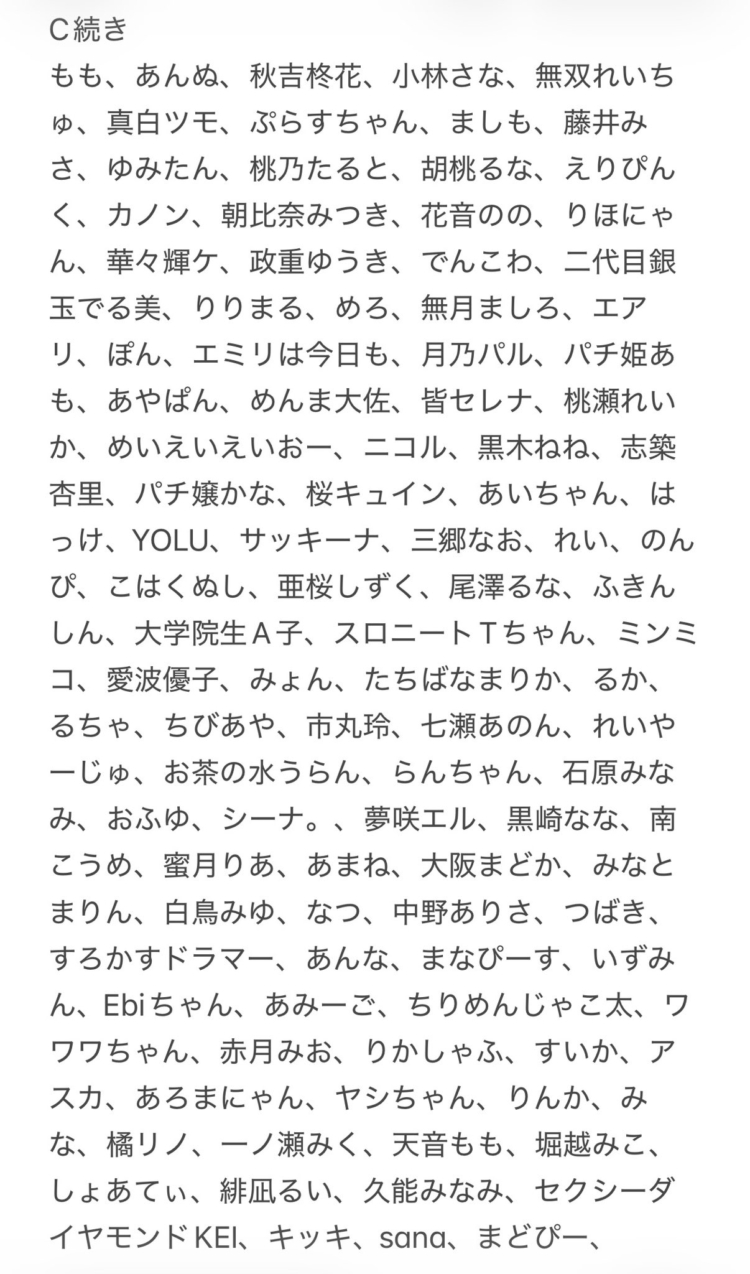 C続き
もも、あんぬ、秋吉柊花、小林さな、無双れいち
ゅ、真白ツモ、ぷらすちゃん、ましも、藤井み
さ、ゆみたん、桃乃たると、胡桃るな、えりぴん
く、カノン、朝比奈みつき、花音のの、りほにゃ
ん、華々輝ケ、政重ゆうき、でんこわ、二代目銀
玉でる美、りりまる、めろ、無月ましろ、エア
リ、ぽん、エミリは今日も、月乃パル、パチ姫あ
も、あやぱん、めんま大佐、皆セレナ、桃瀬れい
か、めいえいえいおー、ニコル、黒木ねね、志築
杏里、パチ嬢かな、桜キュイン、あいちゃん、は
っけ、YOLU、サッキーナ、三郷なお、れい、のん
ぴ、こはくぬし、亜桜しずく、尾澤るな、ふきん
しん、大学院生A子、スロニートTちゃん、ミンミ
コ、愛波優子、みょん、たちばなまりか、るか、
るちゃ、ちびあや、市丸玲、七瀬あのん、れいや
ーじゅ、お茶の水うらん、らんちゃん、石原みな
み、おふゆ、シーナ。、夢咲エル、黒崎なな、南
こうめ、蜜月りあ、あまね、大阪まどか、みなと
まりん、白鳥みゆ、なつ、中野ありさ、つばき、
すろかすドラマー、あんな、まなぴーす、いずみ
ん、Ebiちゃん、あみーご、ちりめんじゃこ太、ワ
ワワちゃん、赤月みお、りかしゃふ、すいか、ア
スカ、あろまにゃん、ヤシちゃん、りんか、み
な、橘リノ、一ノ瀬みく、天音もも、堀越みこ、
しょあてぃ、緋凪るい、久能みなみ、セクシーダ
イヤモンドKEI、キッキ、sana、まどぴー、